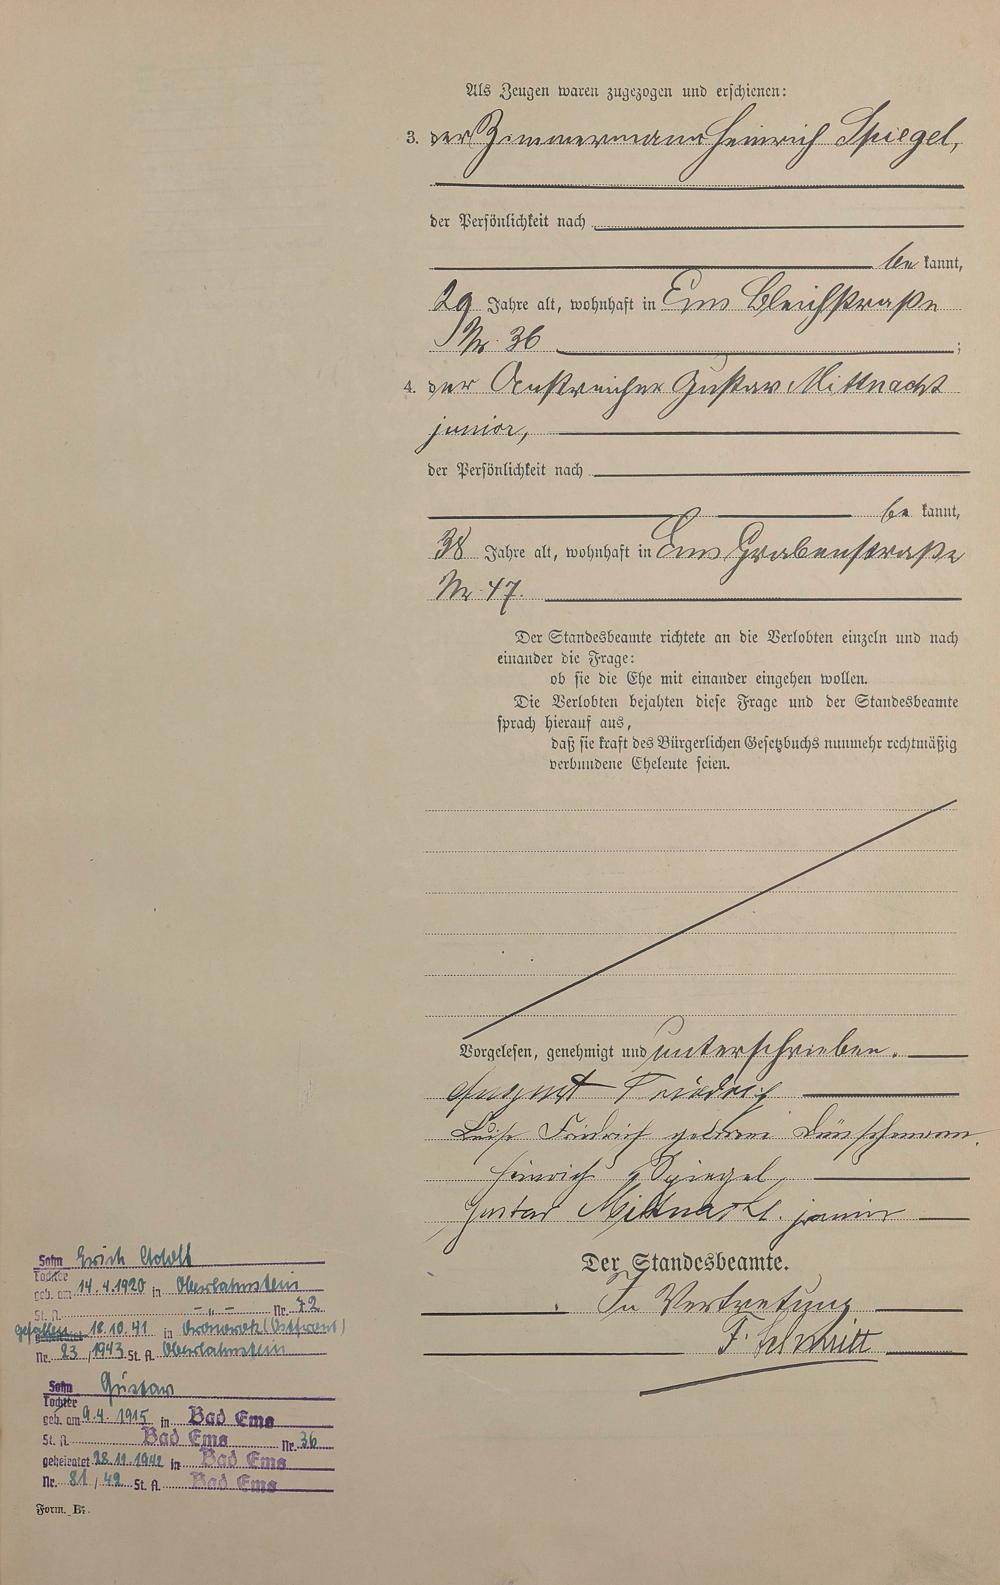 Als Zeugen waren zugezogen und erschienen:
3. der Zimmermann Heinrich Spiegel,
der Persönlichkeit nach
be kannt,
29 Jahre alt, wohnhaft in Ems Bleichstraße
Nr. 36 ;
4. der Anstreicher Gustav Mittnacht
junior,
der Persönlichkeit nach
be kannt,
38 Jahre alt, wohnhaft in Ems Grabenstraße
Nr. 47.
Der Standesbeamte richtete an die Verlobten einzeln und nach
einander die Frage:
ob sie die Ehe mit einander eingehen wollen.
Die Verlobten bejahten diese Frage und der Standesbeamte
sprach hierauf aus,
daß sie kraft des Bürgerlichen Gesetzbuchs nunmehr rechtmäßig
verbundene Eheleute seien.
Vorgelesen, genehmigt und unterschrieben.
August Friedrich
Luise Friedrich geborene
Heinrich Spiegel
Gustav Mittnacht junior
Der Standesbeamte.
In Vertretung
F. Schmitt
Sohn Erich Adolf
Tochter
geb. am 14.4.1920 in Oberlahnstein
St. A. -„- Nr. 72
gefallen 18.10.41 in (Ostfront)
Nr. 23/1943 St. A. Oberlahnstein
Sohn Gustav
Tochter
geb. am 9.4.1915 in Bad Ems
St. A. Bad Ems Nr. 36
geheiratet 28.11.1942 in Bad Ems
Nr. 81/42 St. A. Bad Ems
Form. B.